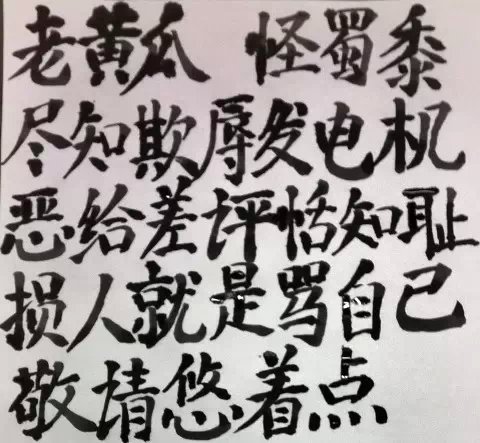 老黄瓜 怪蜀黍
尽知欺辱发电机
恶给差评恬知耻
损人就是骂自己
敬请悠着点